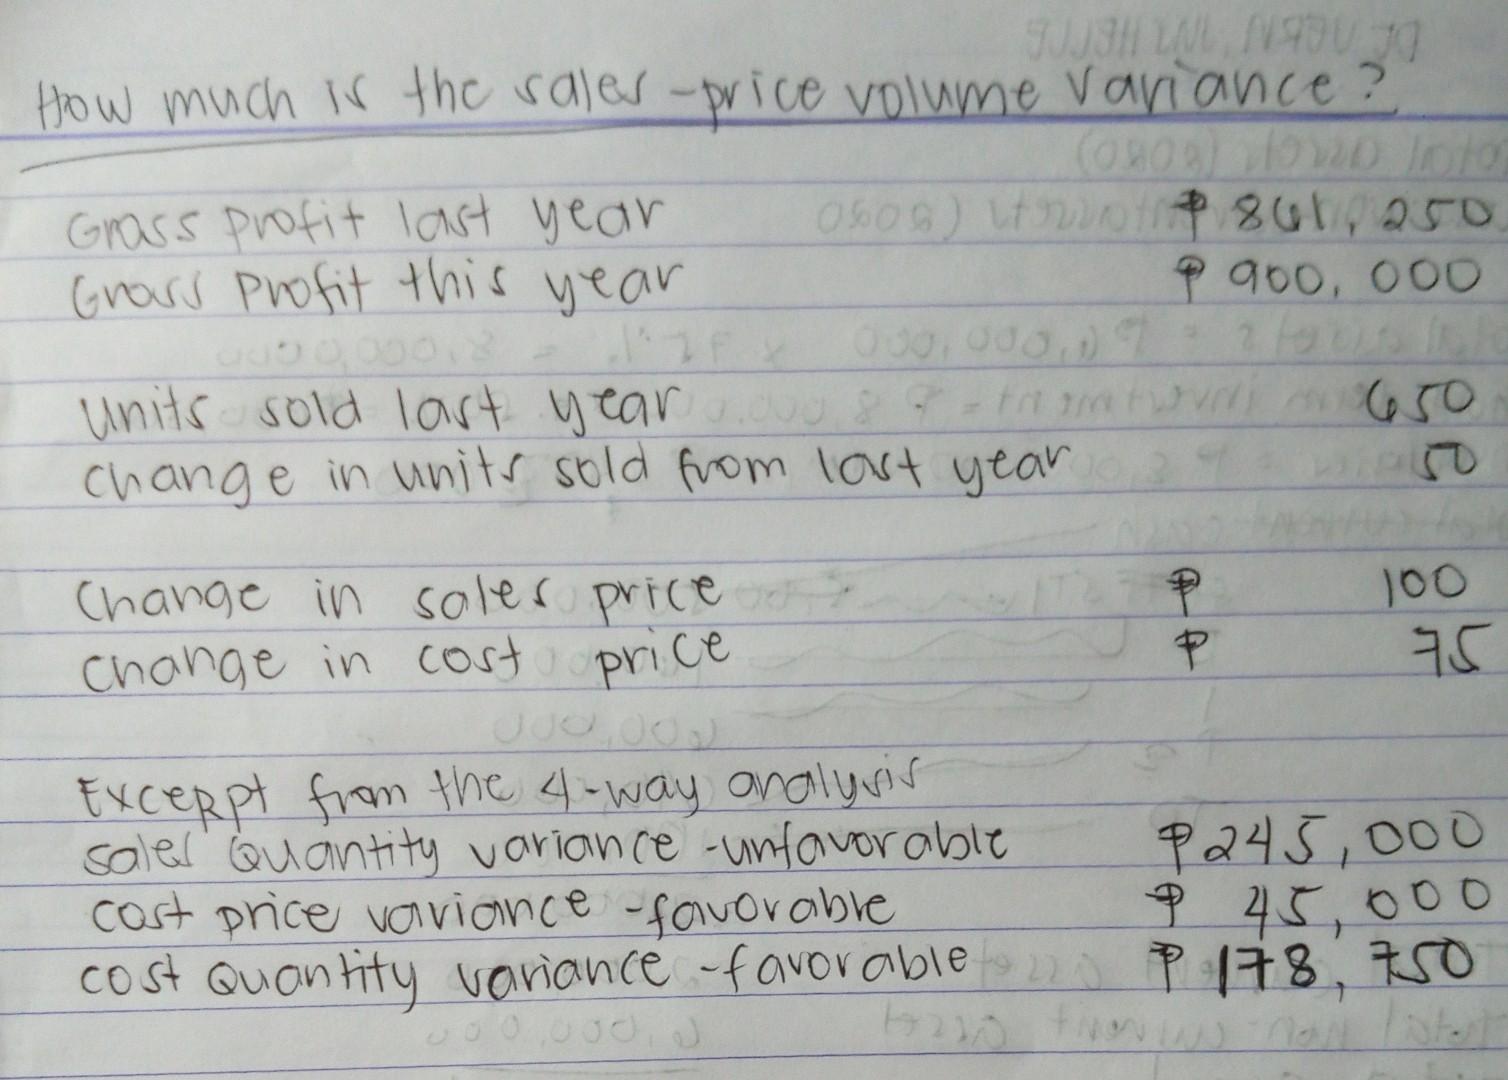 How much is the sales-price volume variance?
Gross profit last year ₱ 861,250
Gross Profit this year ₱ 900,000
Units sold last year 650
change in units sold from last year 50
Change in sales price ₱ 100
change in cost price ₱ 75
Excerpt from the 4-way analysis
sales Quantity variance -unfavorable ₱245,000
cost price variance -favorable ₱ 45,000
cost Quantity variance -favorable ₱ 178,750